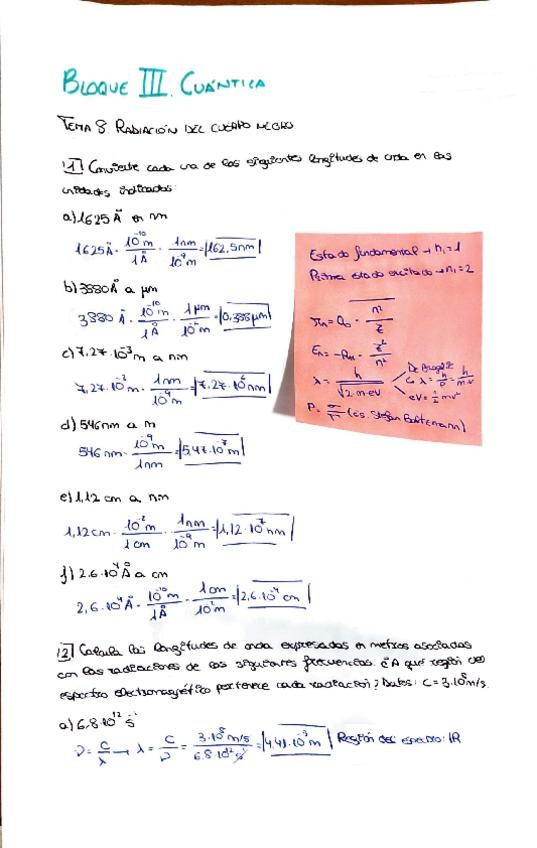 BLOQUE III. CUÁNTICA
TEMA 8. RADIACIÓN DEL CUERPO NEGRO
1 Convierte cada una de las siguientes longitudes de onda en las
unidades indicadas
a) 1625 Å en nm
1625 Å · 10⁻¹⁰ m / 1 Å · 1 nm / 10⁻⁹ m = 162,5 nm
b) 3880 Å a μm
3880 Å · 10⁻¹⁰ m / 1 Å · 1 μm / 10⁻⁶ m = 0,388 μm
c) 7,27·10⁻³ m a nm
7,27·10⁻³ m · 1 nm / 10⁻⁹ m = 7,27·10⁶ nm
d) 546 nm a m
546 nm · 10⁻⁹ m / 1 nm = 5,47·10⁻⁷ m
e) 1,12 cm a nm
1,12 cm · 10⁻² m / 1 cm · 1 nm / 10⁻⁹ m = 1,12·10⁷ nm
f) 2,6·10⁴ Å a cm
2,6·10⁴ Å · 10⁻¹⁰ m / 1 Å · 1 cm / 10⁻² m = 2,6·10⁻⁴ cm
Estado fundamental → n₁=1
Primer estado excitado → n₁=2
n² / Z
Z² / n²
λ = h / √2·m·eV
De Broglie
λ = h / p = h / m·v
eV = ½mv²
2 Calcula las longitudes de onda expresadas en metros asociadas
con las radiaciones de las siguientes frecuencias. ¿A qué región del
espectro electromagnético pertenece cada radiación? Datos: C = 3·10⁸ m/s
a) 6.8·10¹² s⁻¹
ν = C / λ → λ = C / ν = 3·10⁸ m/s / 6.8·10¹² s⁻¹ = 4,41·10⁻⁵ m Región del espectro: IR